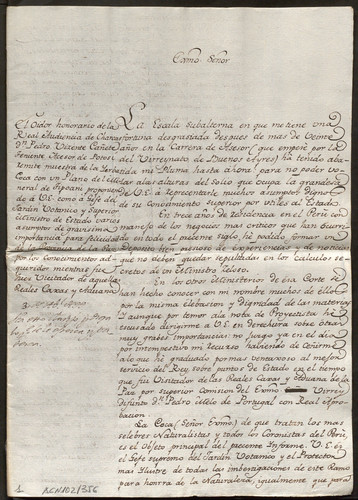 Exmo. Señor
El Oidor honorario de la
Real Audiencia de Charcas
Dn. Pedro Vicente Cañete
Teniente Asesor de Potosi
remite muestra de la Yerba
Coca con un Plano de el
general de
á V.E. como á Gefe del
Jardin Botanico y Superior
Ministro de Estado
asumptos de gravisima
importancia para
por los conocimientos ad-
queridos mientras fue
Juez Visitador de aquellas
Reales Caxas y Aduana
La Escala subalterna en que me tiene una
fortuna desgraciada despues de mas de veinte
años en la Carrera de Asesor (que empecé por la
del Virreynato de Buenos Ayres) há tenido aba-
tida mi Pluma hasta ahora para no poder vo-
lar alas alturas del Solio que ocupa la grandeza
de V.E. á Representarle muchos asumptos dignos
de su conocimiento superior por utiles al Estado.
En trece años de residencia en el Perú con
manejo de los negocios mas criticos que han ocurri-
do en todo el presente siglo, hé podido formar un
tesoro de experiencias y de noticias
que no deben quedar sepultadas en los calculos se-
cretos de un Ministro zeloso.
En los otros Ministerios de esa Corte se
han hecho conocer con mi nombre muchos de ellos
por la misma elebacion y dignidad de las materias,
y aunque por temor ala nota de Proyectista hé
escusado dirigirme á V.E. en derechura sobre otras
muy grabes importancias; no juzgo ya en el dia
por intempestivo mi recurso habiendo de ceñirme
alo que hé graduado por mas ventajoso al mejor
servicio del Rey sobre puntos de Estado en el tiempo
que fui Visitador de las Reales Caxas y Aduana de la
Paz por superior Comision del Exmo. Virrey
difunto Dn. Pedro Melo de Portugal con Real Apro-
bacion.
La Coca (Señor Exmo.) de que tratan los mas
celebres Naturalistas y todos los Coronistas del Perú,
es el Objeto principal del presente Informe. V.E. es
el Gefe supremo del Jardin Botanico, y el Protector
mas Ilustre de todas las imbestigaciones de este Ramo
para honra de la Naturaleza, igualmente que para
1
ACN102/356